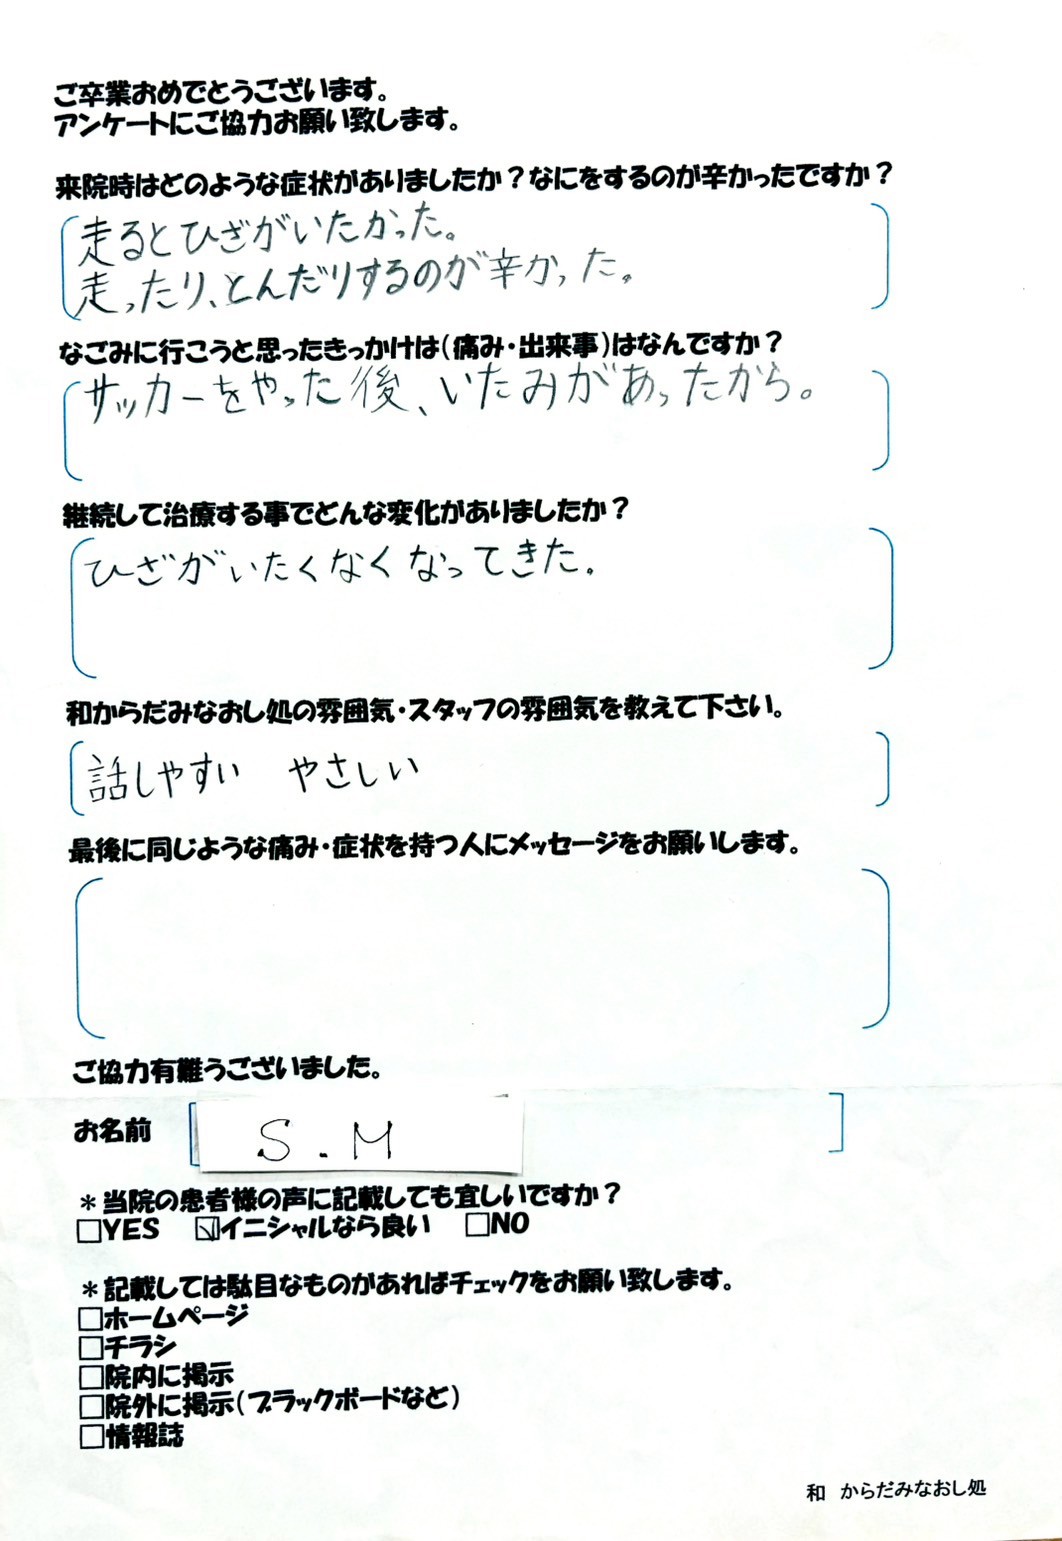 ご卒業おめでとうございます。
アンケートにご協力お願い致します。
来院時はどのような症状がありましたか？なにをするのが辛かったですか？
走るとひざがいたかった。
走ったり、とんだりするのが辛かった。
なごみに行こうと思ったきっかけは(痛み・出来事)はなんですか？
サッカーをやった後、いたみがあったから。
継続して治療する事でどんな変化がありましたか？
ひざがいたくなくなってきた。
和からだみなおし処の雰囲気・スタッフの雰囲気を教えて下さい。
話しやすい　やさしい
最後に同じような痛み・症状を持つ人にメッセージをお願いします。
ご協力有難うございました。
お名前 S.M
＊当院の患者様の声に記載しても宜しいですか？
□YES ☑イニシャルなら良い □NO
＊記載しては駄目なものがあればチェックをお願い致します。
□ホームページ
□チラシ
□院内に掲示
□院外に掲示(ブラックボードなど)
□情報誌
和　からだみなおし処